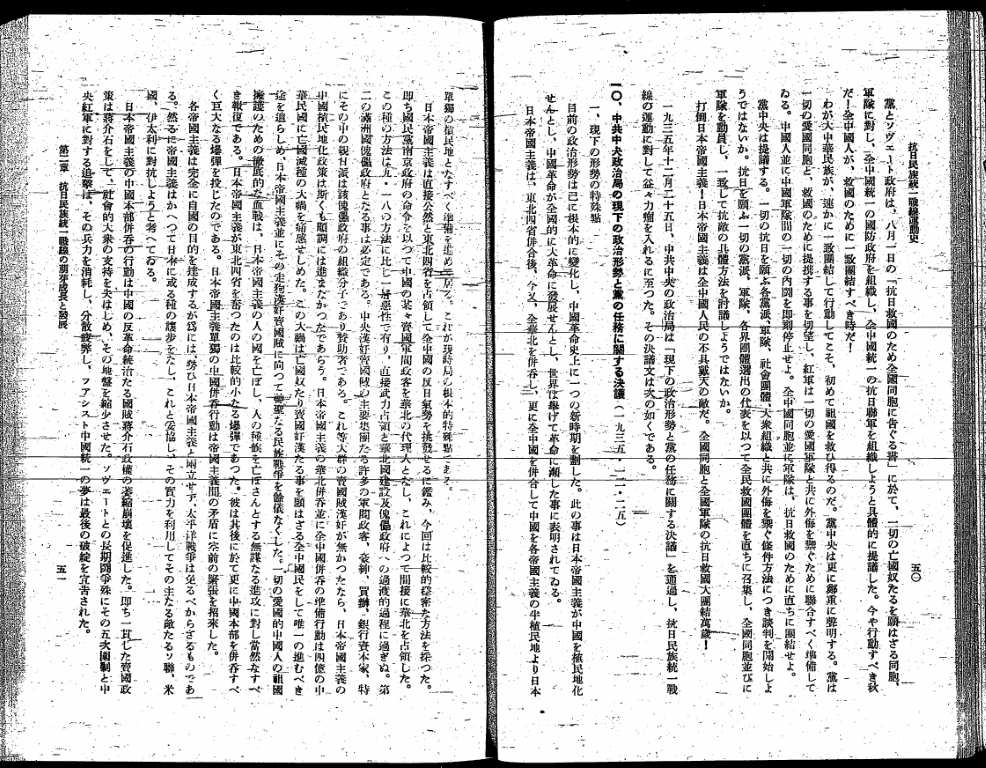 抗日民族統一戰線運動史
五〇
黨とソヴェート政府は、八月一日の「抗日救國のため全國同胞に告ぐる書」に於て、一切の亡國奴たるを願はざる同胞、
軍隊に對し、全中國統一の國防政府を組織し、全中國統一の抗日聯軍を組織しようと具體的に提議した。今や行動すべき秋
だ！全中國人が、救國のために一致團結すべき時だ！
わが大中華民族が、速かに一致團結して行動してこそ、初めて祖國を救ひ得るのだ。黨中央は更に鄭重に聲明する。黨は
一切の愛國同胞と、救國のために提携する事を切望し、紅軍は一切の愛國軍隊と共に外侮を禦ぐために聯合すべく準備して
ゐる。中國人並に中國軍隊間の一切の內鬪を卽刻停止せよ。全中國同胞並に軍隊は、抗日救國のために直ちに團結せよ。
黨中央は提議する。一切の抗日を願ふ各黨派、軍隊、社會團體、大衆組織と共に外侮を禦ぐ條件方法につき談判を開始しよ
うではないか。抗日を願ふ一切の黨派、軍隊、各界團體選出の代表を以つて全民救國團體を直ちに召集し、全國同胞並びに
軍隊を動員し、一致して抗敵の具體方法を討議しようではないか。
打倒日本帝國主義！日本帝國主義は全中國人民の不具戴天の敵だ。全國同胞と全國軍隊の抗日救國大團結萬歲！
一九三五年十二月二十五日、中共中央の政治局は「現下の政治形勢と黨の任務に關する決議」を通過し、抗日民族統一戰
線の運動に對して益々力瘤を入れるに至つた。その決議文は次の如くである。
一〇、中共中央政治局の現下の政治形勢と黨の任務に關する決議（一九三五・一二・二五）
一、現下の形勢の特殊點
目前の政治形勢は已に根本的に變化し、中國革命史上に一つの新時期を劃した。此の事は日本帝國主義が中國を植民地化
せんとし、中國革命が全國的に大革命に發展せんとし、世界は擧げて革命に潮した事に表明されてゐる。
日本帝國主義は、東北四省併合後、今又、全華北を併吞し、更に全中國を併合して中國を各帝國主義の半植民地より日本
單獨の植民地となすべく準備を進めてゐる。これが現時局の根本的特殊點である。
日本帝國主義は直接公然と東北四省を占領して全中國の反日氣勢を挑發せるに鑑み、今回は比較的穩密な方法を採つた。
卽ち國民黨南京政府の命令を以つて中國の來々賣國軍閥政客を華北の代理人となし、これによつて間接に華北を占領した。
この種の方法は九・一八の方法に比し一層惡性で有り、直接武力占領と華北國建設及傀儡政府への過渡的過程に過ぎぬ。第
二の滿洲國傀儡政府となる事は必定である。中央漢奸賣國賊の主要集團たる許多の軍閥政客、豪紳、買辦、銀行資本家、特
にその中の親日派は該傀儡政府の組織分子であり贊助者である。これ等大群の賣國賊漢奸が無かつたなら、日本帝國主義の
中國植民地化政策は斯くも順調には進まなかつたであらう。日本帝國主義の華北併吞並に全中國併吞の準備行動は四億の中
華民國に亡國滅種の大禍を痛感せしめた。この大禍は亡國奴たり賣國奸漢たる事を願はざる全中國民をして唯一の進むべき
途を迫らしめ、日本帝國主義並にその走狗漢奸賣國賊に向つて神聖なる民族戰爭を餘儀なくした。一切の愛國的中國人の祖國
擁護のための徹底的な血戰は、日本帝國主義の人の國を亡ぼし、人の種族を亡ぼさんとする無謀たる進攻に對し當然なすべ
き報復である。日本帝國主義が東北四省を吞つたのは比較的小なる爆彈であつた。彼は其後に於て更に中國本部を併吞すべ
く巨大なる爆彈を投じたのである。日本帝國主義單獨の中國併吞行動は帝國主義間の矛盾に空前の緊張を招來した。
各帝國主義は完全に自國の目的を達成するが爲には勢ひ日本帝國主義と兩立せず太平洋戰爭は免るべからざるものであ
る。然るに帝國主義はかへつて日本に或る種の讓步をなし、これと妥協し、その實力を利用してその主なる敵たるソ聯、米
國、伊太利に對抗しようと考へてゐる。
日本帝國主義の中國本部併吞の行動は中國の反革命統治たる國賊蔣介石政權の萎縮崩壞を促進した。卽ち一貫した賣國政
策は蔣介石をして、社會的大衆の支持を失はしめ、その地盤を縮少させた。ソヴェートとの長期鬪爭殊にその五次圍剿と中
央紅軍に對する追擊は、その兵力を消耗し、分散疲弊し、ファシスト中國統一の夢は最後の破綻を宣吿された。
第二章　抗日民族統一戰線の萠芽成長と發展
五一